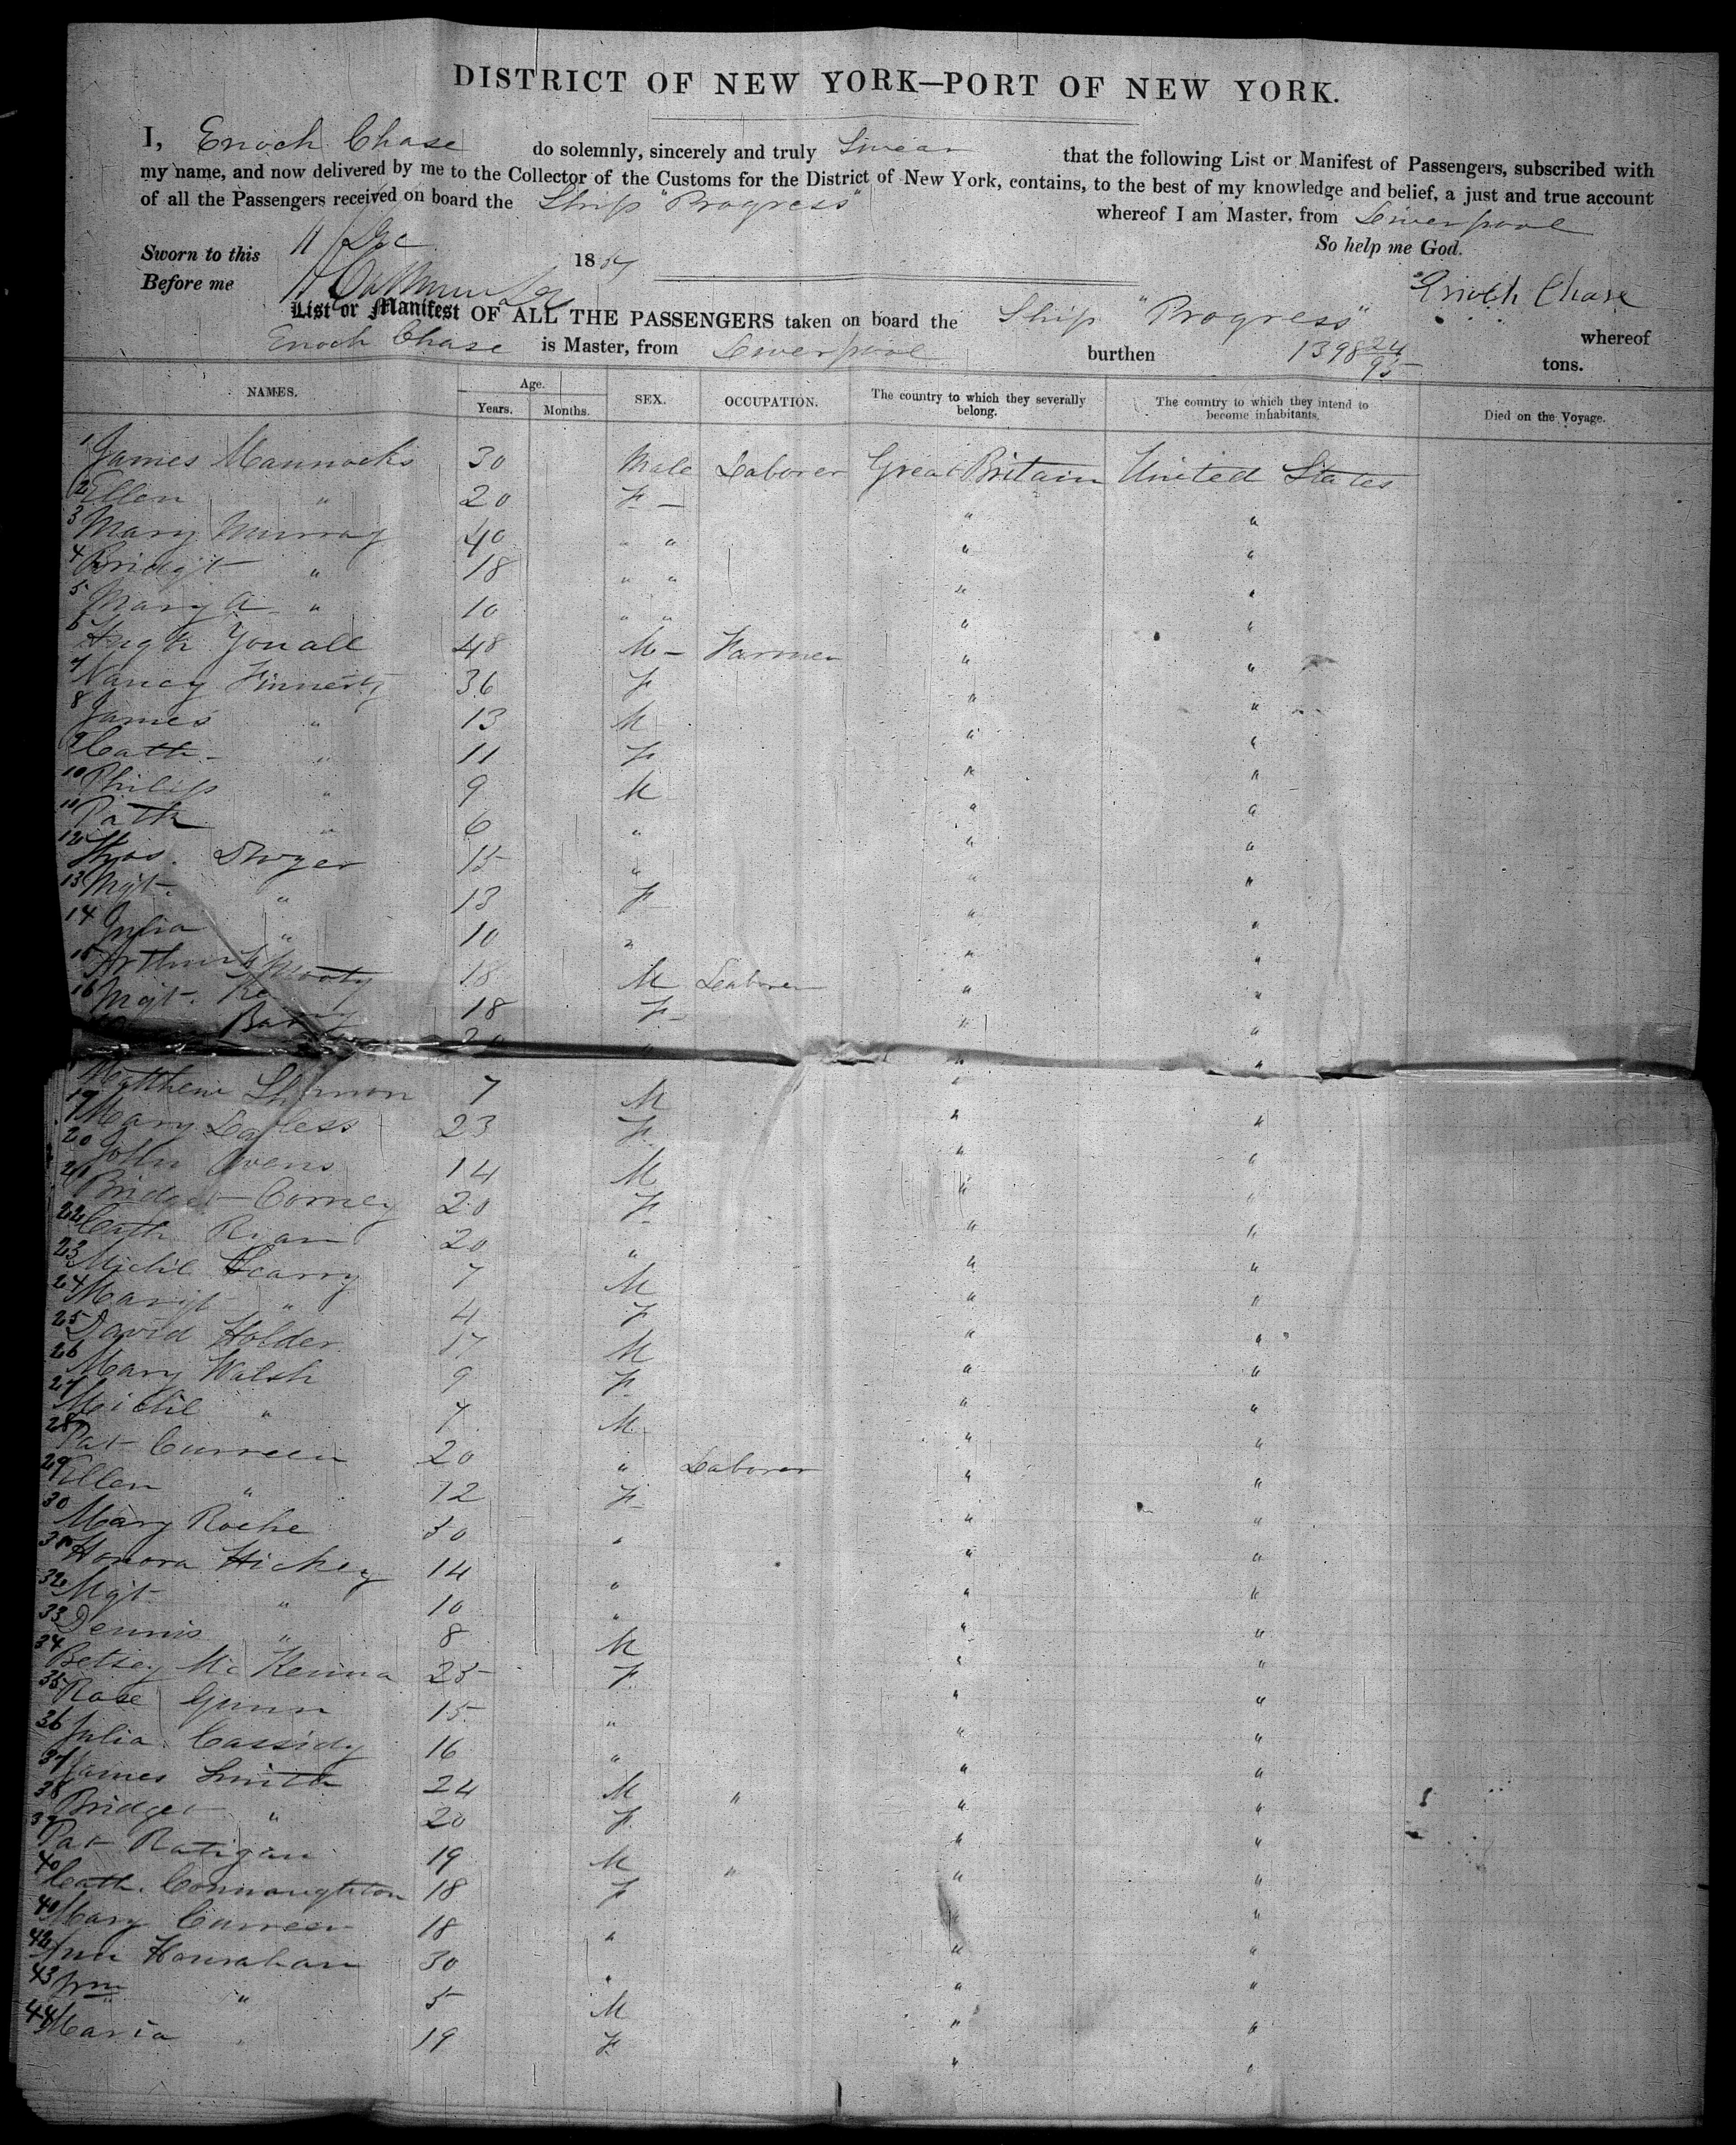 DISTRICT OF NEW YORK—PORT OF NEW YORK.
I, Enoch Chase do solemnly, sincerely and truly Swear that the following List or Manifest of Passengers, subscribed with
my name, and now delivered by me to the Collector of the Customs for the District of New York, contains, to the best of my knowledge and belief, a just and true account
of all the Passengers received on board the Ship "Progress" whereof I am Master, from Liverpool
Sworn to this 11 Dec 18 So help me God.
Before me Enoch Chase
List or Manifest OF ALL THE PASSENGERS taken on board the Ship "Progress" whereof
Enoch Chase is Master, from Liverpool burthen 1398 24/95 tons.
NAMES. Age. Years. Months. SEX. OCCUPATION. The country to which they severally belong. The country to which they intend to become inhabitants. Died on the Voyage.
1 James Mannocks 30 Male Laborer Great Britain United States
2 Ellen " 20 F - " "
3 Mary Murray 40 " " "
4 Bridgt " 18 " " " "
5 Mary A " 10 " " " "
6 Hugh Youall 48 M - Farmer " "
7 Nancy Finnerty 36 F " "
8 James " 13 M " "
9 Cath - " 11 F " "
10 Philip " 9 M " "
11 Patk " 6 " " "
12 Thos. Dwyer 15 " " "
13 Mgt. " 13 F " "
14 Julia " 10 " " "
15 Arthur 18 M Laborer " "
16 Mgt. 18 F - " "
20 " " "
Matthew 7 M " "
19 Mary Lawless 23 F " "
20 John Owens 14 M " "
21 Bridget Corney 20 F " "
22 Cath Ryan 20 " " "
23 Michl Scarry 7 M " "
24 Margt " 4 F " "
25 David Holder 17 M " "
26 Mary Walsh 9 F " "
27 Michl " 7 M " "
28 Pat Curreen 20 " Laborer " "
29 Ellen " 12 F " "
30 Mary Roche 30 " " "
31 Honora Hickey 14 " " "
32 Mgt " 10 " " "
33 Dennis " 8 M " "
34 Betsey McKenna 25 F " "
35 Rose Gunn 15 " " "
36 Julia Cassidy 16 " " "
37 James Smith 24 M " " "
38 Bridget " 20 F " "
39 Pat Ratigan 19 M " " "
40 Cath. Connaughton 18 F " "
41 Mary Curreen 18 " " "
42 Ann Hanrahan 30 " " "
43 Wm " 5 M " "
44 Maria " 19 F " "